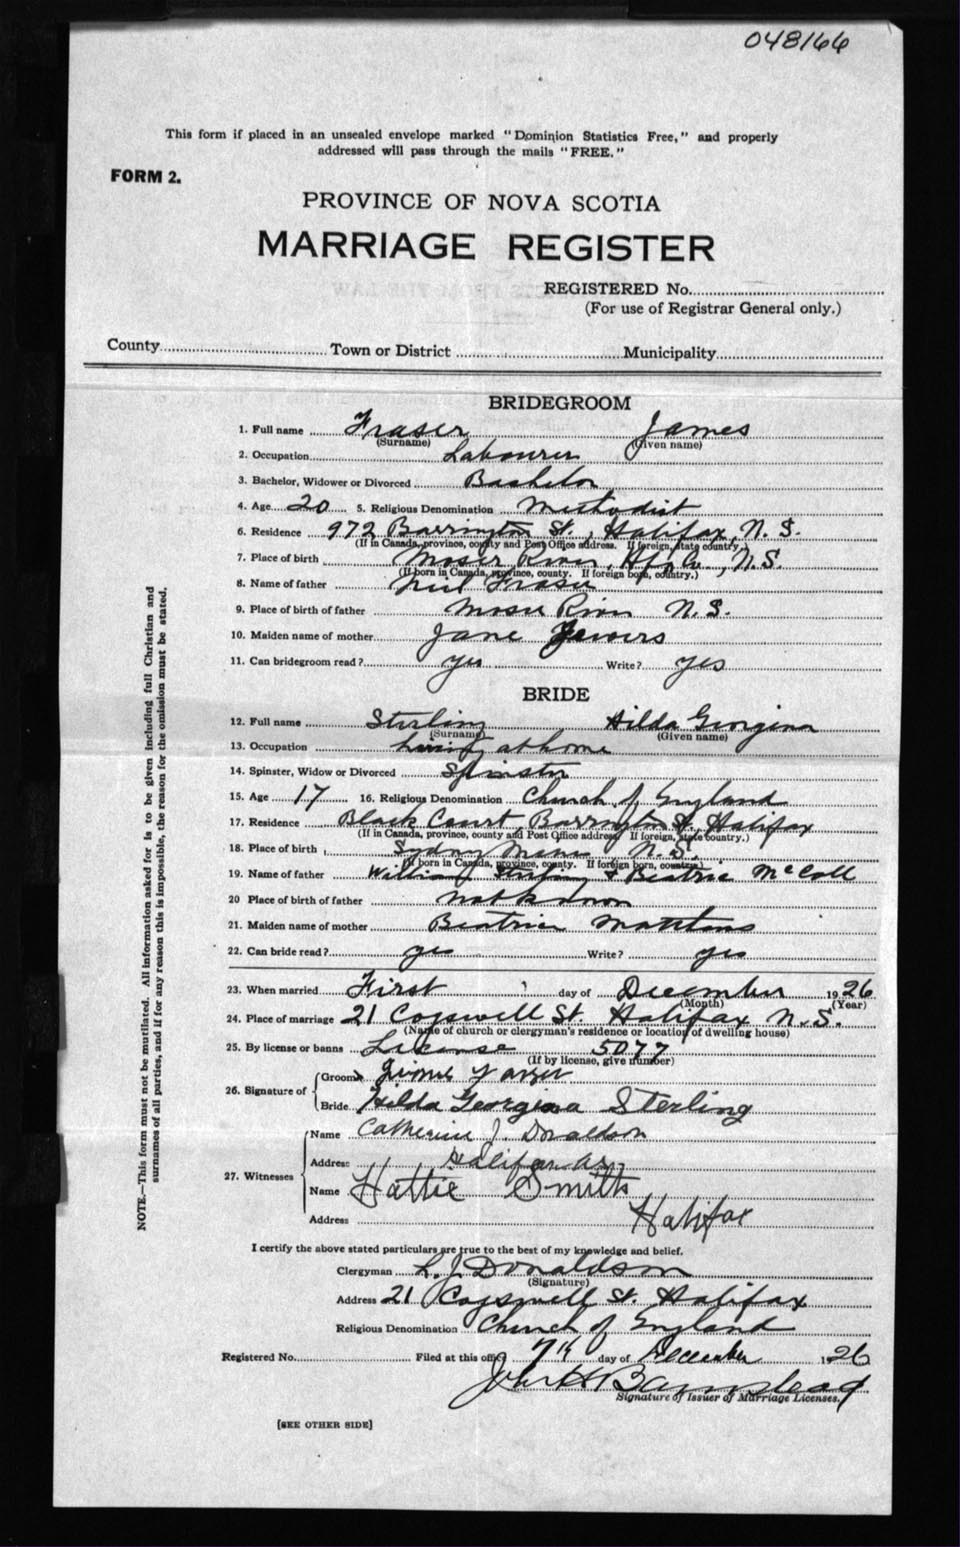 048166
This form if placed in an unsealed envelope marked "Dominion Statistics Free," and properly
addressed will pass through the mails "FREE."
FORM 2.
PROVINCE OF NOVA SCOTIA
MARRIAGE REGISTER
REGISTERED No.
(For use of Registrar General only.)
County Town or District Municipality
BRIDEGROOM
1. Full name Fraser James
(Surname) (Given name)
2. Occupation Labourer
3. Bachelor, Widower or Divorced Bachelor
4. Age 20 5. Religious Denomination Methodist
6. Residence 972 Barrington St, Halifax, N.S.
(If in Canada, province, county and Post Office address. If foreign, state country.)
7. Place of birth Moser River, Hfx Co., N.S.
(If born in Canada, province, county. If foreign born, country.)
8. Name of father Neil Fraser
9. Place of birth of father Moser River N.S.
10. Maiden name of mother Jane
11. Can bridegroom read? yes Write? yes
BRIDE
12. Full name Sterling Hilda Georgina
(Surname) (Given name)
13. Occupation living at home
14. Spinster, Widow or Divorced Spinster
15. Age 17 16. Religious Denomination Church of England
17. Residence Black Court, Barrington St, Halifax
(If in Canada, province, county and Post Office address. If foreign, state country.)
18. Place of birth Sydney Mines N.S.
(If born in Canada, province, county. If foreign born, country.)
19. Name of father William Sterling & Beatrice McColl
20 Place of birth of father not known
21. Maiden name of mother Beatrice
22. Can bride read? yes Write? yes
23. When married First day of December 1926
(Month) (Year)
24. Place of marriage 21 Cogswell St. Halifax N.S.
(Name of church or clergyman's residence or location of dwelling house)
25. By license or banns License 5077
(If by license, give number)
26. Signature of Groom
Bride Hilda Georgina Sterling
27. Witnesses Name Catherine J. Donaldson
Address Halifax N.S.
Name Hattie Smith
Address Halifax
I certify the above stated particulars are true to the best of my knowledge and belief.
Clergyman L. J. Donaldson
(Signature)
Address 21 Cogswell St. Halifax
Religious Denomination Church of England
Registered No. Filed at this office 7th day of December 1926
John H Barnstead
Signature of Issuer of Marriage Licenses.
[SEE OTHER SIDE]
NOTE.—This form must not be mutilated. All information asked for is to be given including full Christian and
surnames of all parties, and if for any reason this is impossible, the reason for the omission must be stated.